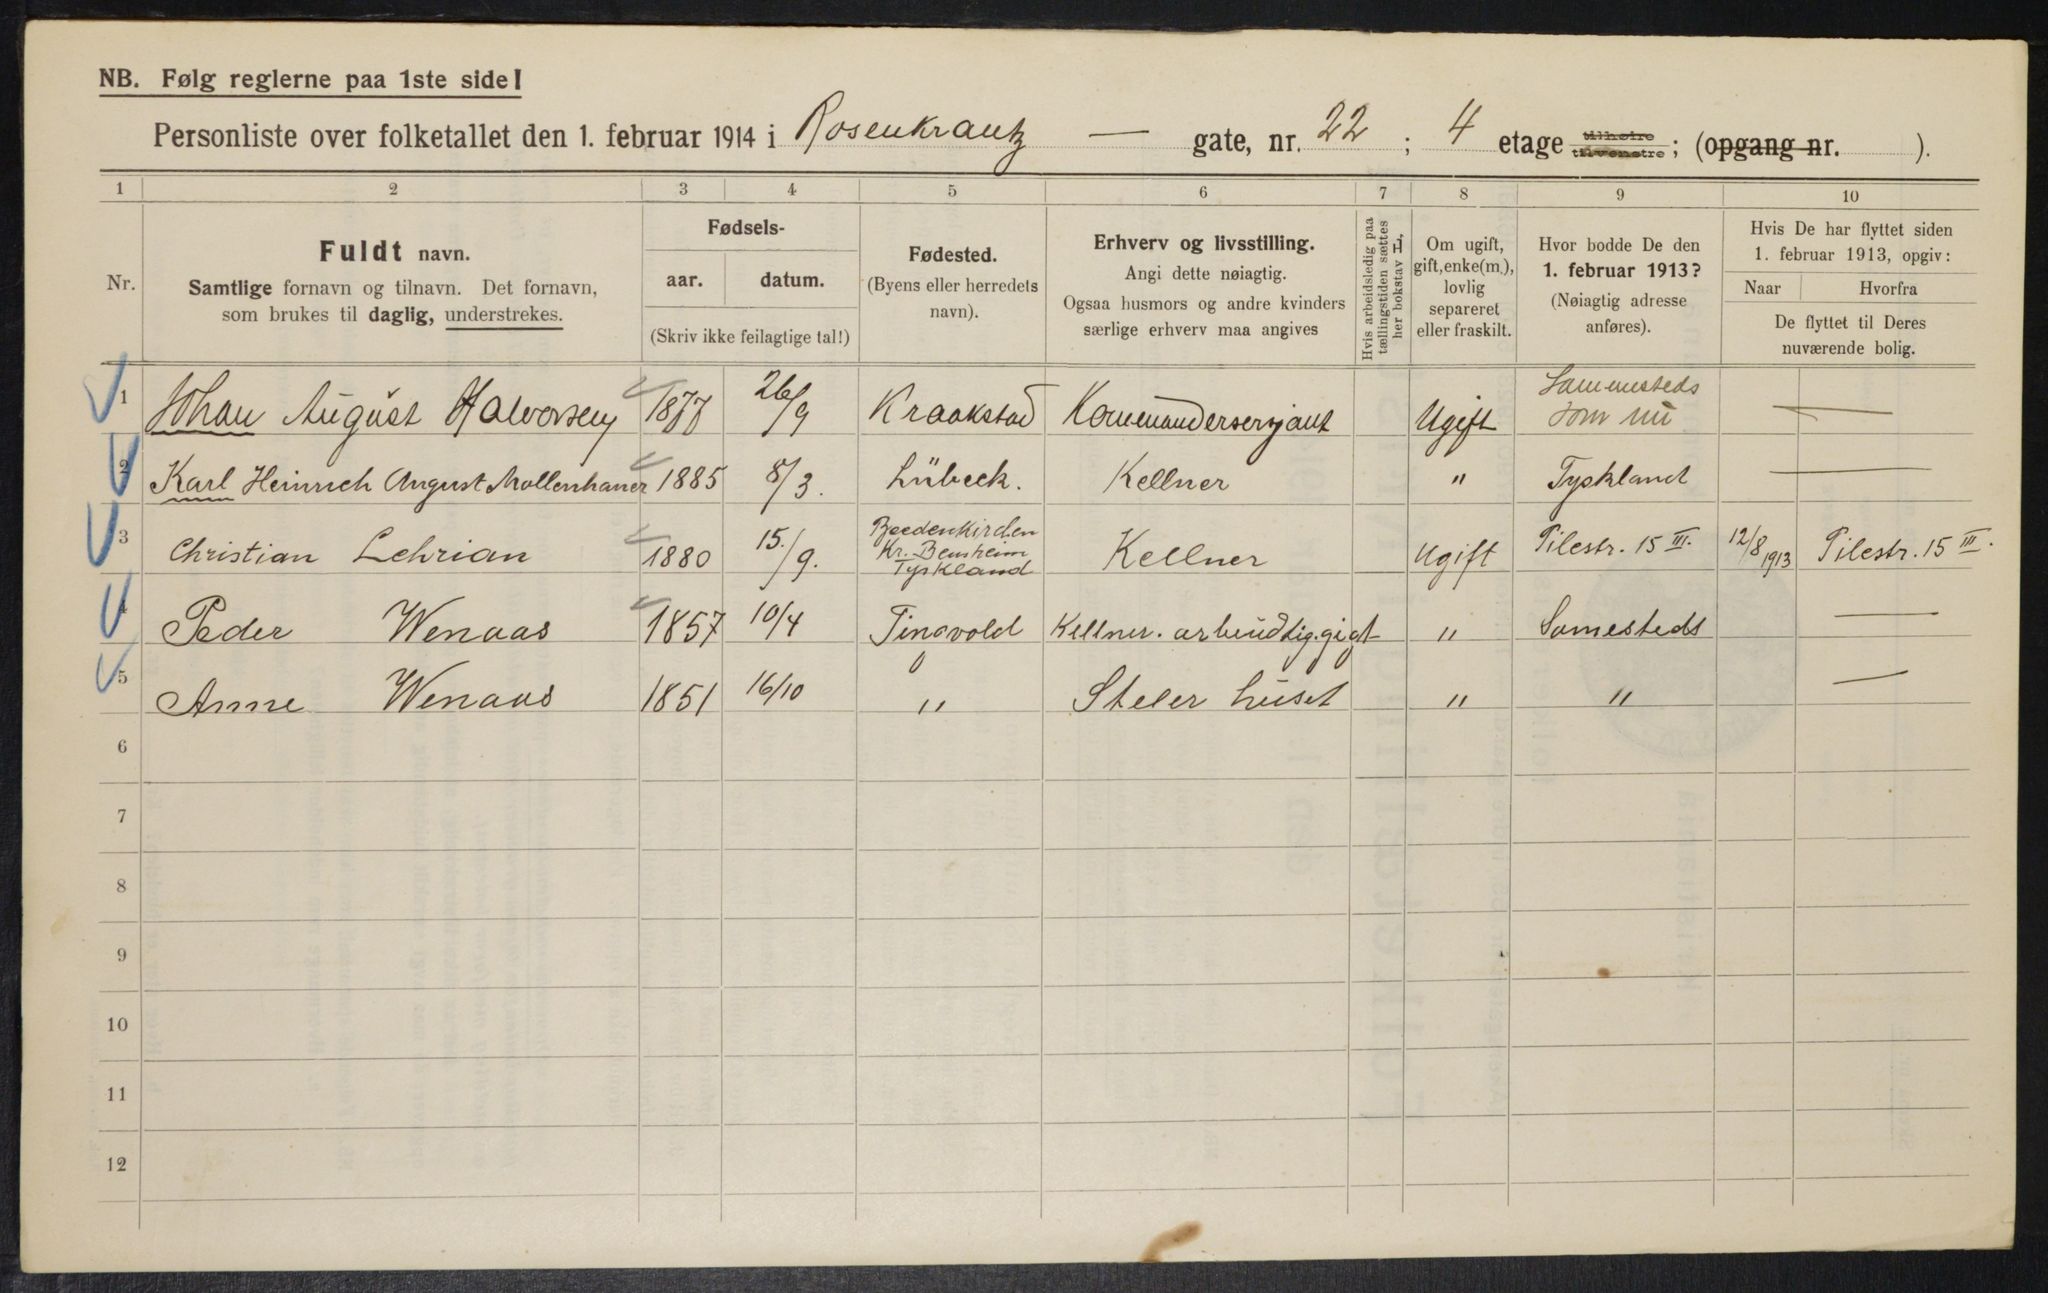 NB. Følg reglerne paa 1ste side!
Personliste over folketallet den 1. februar 1914 i Rosenkrantz — gate, nr. 22 ; 4 etage tilhøire tilvenstre ; (opgang nr. ).
1 2 3 4 5 6 7 8 9 10
Nr.
Fuldt navn.
Samtlige fornavn og tilnavn. Det fornavn,
som brukes til daglig, understrekes.
Fødsels-
aar. datum.
(Skriv ikke feilagtige tal!)
Fødested.
(Byens eller herredets
navn).
Erhverv og livsstilling.
Angi dette nøiagtig.
Ogsaa husmors og andre kvinders
særlige erhverv maa angives
Hvis arbeidsledig paa
tællingstiden sættes
her bokstav L.
Om ugift,
gift, enke(m.),
lovlig
separeret
eller fraskilt.
Hvor bodde De den
1. februar 1913?
(Nøiagtig adresse
anføres).
Hvis De har flyttet siden
1. februar 1913, opgiv:
Naar Hvorfra
De flyttet til Deres
nuværende bolig.
1 Johan August Halvorsen 1877 26/9 Kraakstad Kommandersersjant Ugift Sammesteds som nu —
2 Karl Heinrich August Mollenhauer 1885 8/3. Lübeck. Kellner " Tyskland —
3 Christian Lehrian 1880 15./9. Beedenkirchen Kr. Bensheim Tyskland Kellner Ugift Pilestr. 15 III. 12/8 1913 Pilestr. 15 III.
4 Peder Wenaas 1857 10/4 Tingvold Kellner. arbeudtig. gigt " Samesteds —
5 Anne Wenaas 1851 16/10 " Steler huset " " —
6
7
8
9
10
11
12